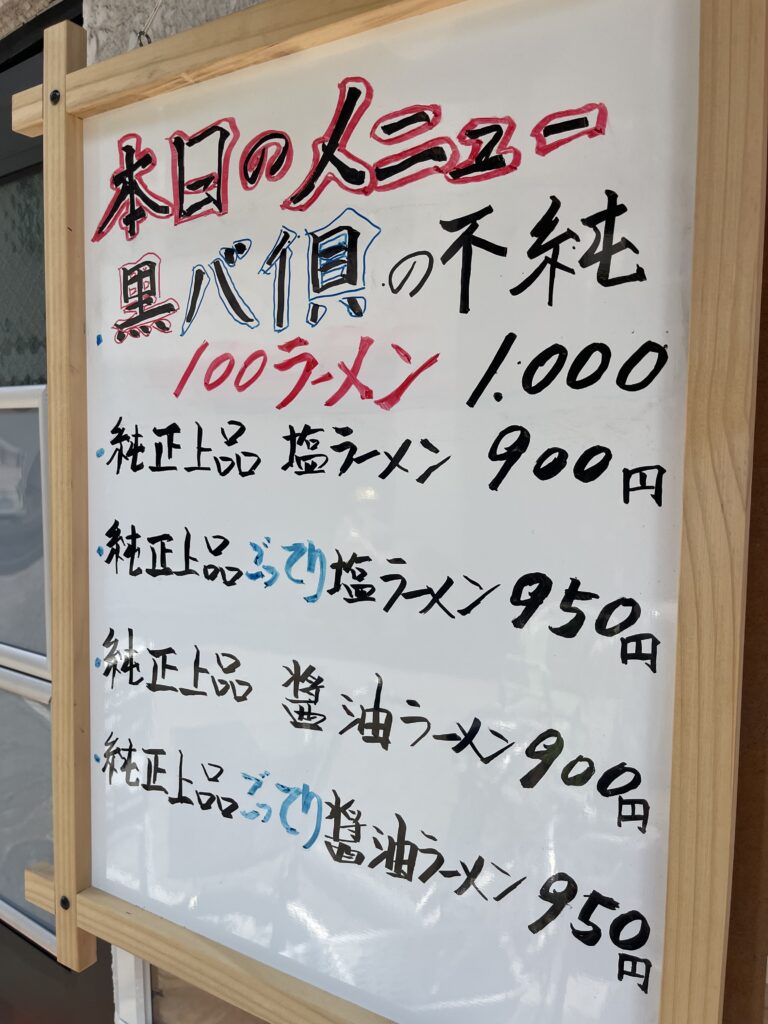 本日のメニュー
黒バイ貝の不純
・100ラーメン 1.000
・純正上品 塩ラーメン 900円
・純正上品ごってり塩ラーメン 950円
・純正上品 醤油ラーメン 900円
・純正上品ごってり醤油ラーメン 950円